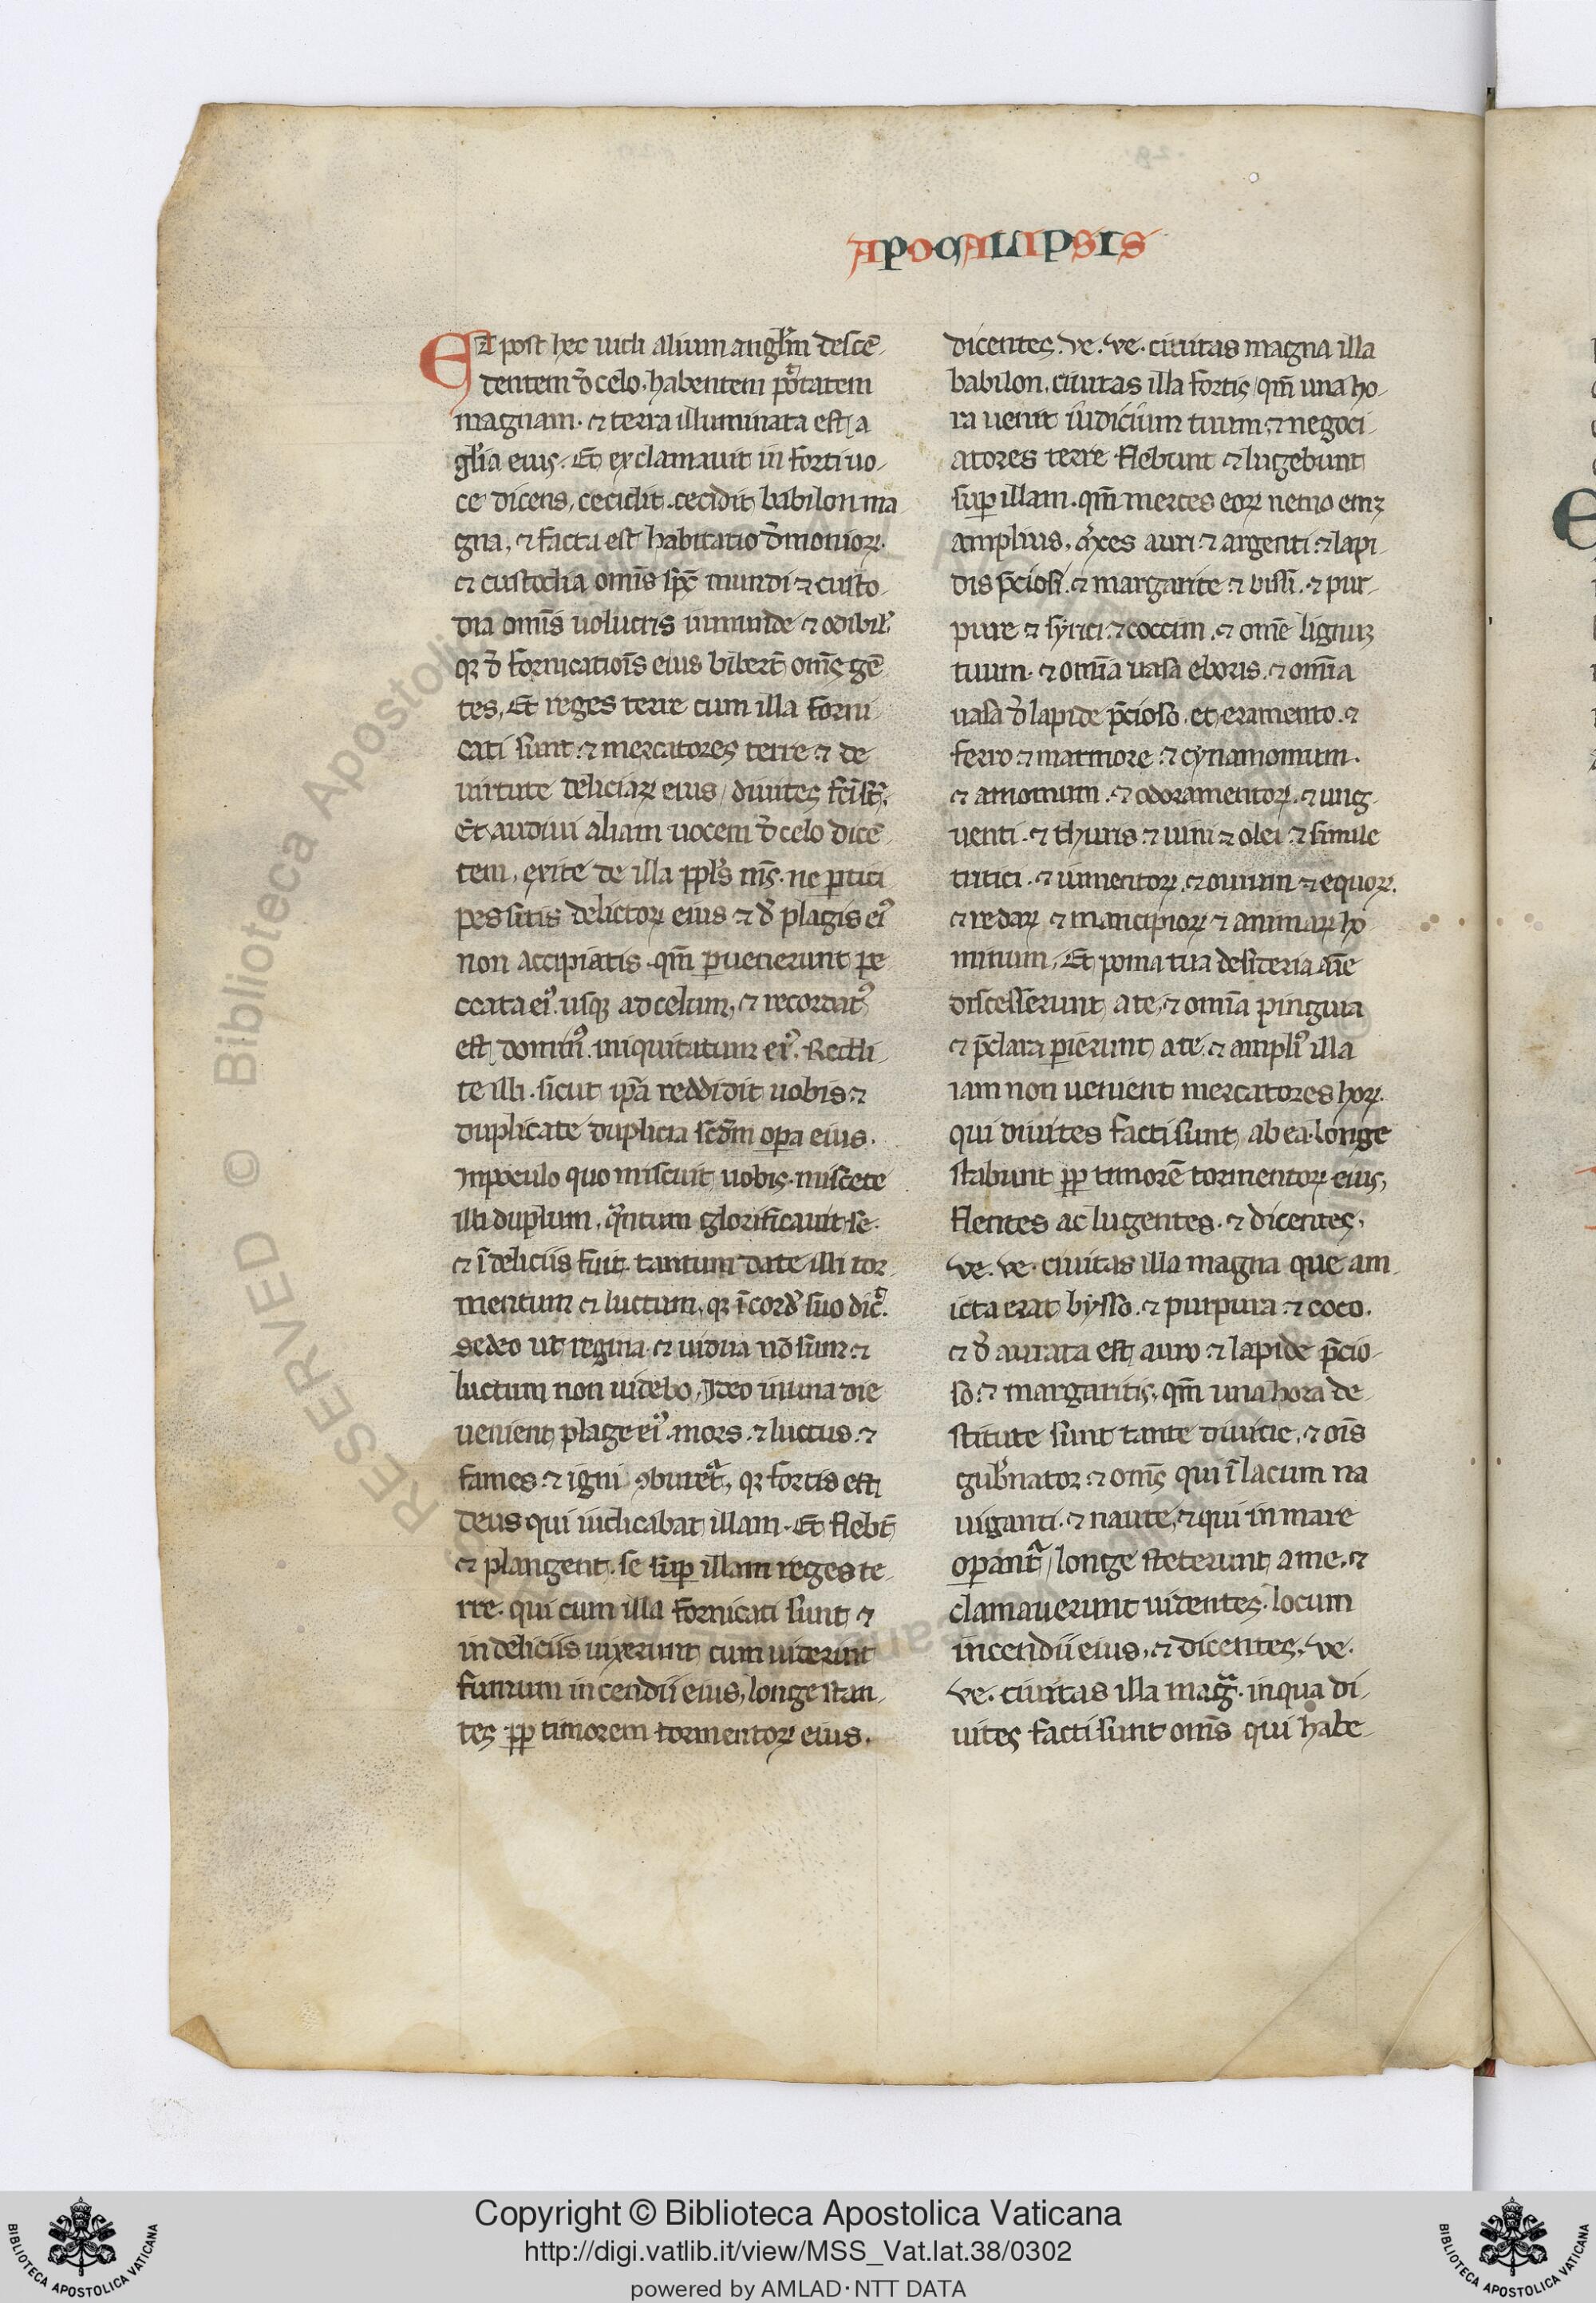 APOCALIPSIS
Et post hec uidi alium angl̃m descē-
dentem đ celo. habentem ptãtatem
magnam. ⁊ terra illuminata est a
gl̃ia eius. Et exclamauit in forti uo-
ce dicens, cecidit. cecidit babilon ma
gna, ⁊ facta est habitatio đmonioꝝ.
⁊ custodia om̃is sp̃c mundi ⁊ custo-
dia om̃is uolucris immunde ⁊ odibil'
qꝛ đ fornicatiois̃ eius biber̃t om̃s gē
tes, Et reges terre cum illa forni-
cati sunt. ⁊ mercatores terre. ⁊ de
uirtute deliciaꝝ eius / diuites fc̃i st̃.
Et audiui aliam uocem đ celo dicē
tem, exite de illa ppl's m̃s. ne ꝑtici
pes sitis delictoꝝ eius ⁊ đ plagis ei'
non accipiatis. qm̃ ꝑuenerunt pe
ccata ei'. usqꝫ ad celum, ⁊ recordat'
est domin'. iniquitatum ei'. Reddi-
te illi. sicut ip̃a reddidit uobis. ⁊
duplicate duplicia scđm oꝑa eius.
Inpoculo quo miscuit uobis. miscete
illi duplum, q̃ntum glorificauit se.
⁊ ĩ deliciis fuit. tantum date illi tor-
mentum ⁊ luctum, qꝛ ĩ corđ suo dic̃.
Sedeo ut regina. ⁊ uidua nō sum. ⁊
luctum non uidebo, Ideo inuna die
uenient plage ei'. mors. ⁊ luctus. ⁊
fames. ⁊ igni ꝯburet̃, qꝛ fortis est
deus qui iudicabat illam. Et flebt̃
⁊ plangent. se suꝑ illam reges te-
rre. qui cum illa fornicati sunt ⁊
in deliciis uixerunt cum uiderint
fumum incendii eius, longe stan-
tes ꝓp timorem tormentoꝝ eius.
dicentes. ve. ve. ciuitas magna illa
babilon, ciuitas illa fortis, qm̃ una ho-
ra uenit iudicium tuum, ⁊ negoci-
atores terre flebunt ⁊ lugebunt
suꝑ illam. qm̃ merces eoꝝ nemo emꝫ
amplius, m̃ces auri. ⁊ argenti. ⁊ lapi-
dis p̃ciosi. ⁊ margarite ⁊ bissi. ⁊ pur-
pure ⁊ syrici. ⁊ coccim. ⁊ om̃e lignuꝫ
tuum. ⁊ om̃ia uasa eboris, ⁊ om̃ia
uasa đ lapide p̃cioso. et eramento. ⁊
ferro ⁊ marmore. ⁊ cynamomum.
⁊ amomum. ⁊ odoramentoꝝ. ⁊ ung-
uenti. ⁊ thuris. ⁊ uini ⁊ olei. ⁊ simile
tritici. ⁊ iumentoꝝ. ⁊ ouium ⁊ equoꝝ.
⁊ redaꝝ ⁊ mancipioꝝ ⁊ animaꝝ ho-
minum, Et poma tua desideria aĩe
discesserunt ate, ⁊ om̃ia pinguia
⁊ p̃clara ꝑierunt ate, ⁊ ampli' illa
iam non uenient mercatores hoꝝ.
qui diuites facti sunt, ab ea. longe
stabunt ꝓp timorē tormentoꝝ eius,
flentes ac lugentes. ⁊ dicentes,
ve. ve. ciuitas illa magna que am
icta erat bysso. ⁊ purpura ⁊ coco.
⁊ đ aurata est auro ⁊ lapide p̃cio-
so. ⁊ margaritis, qm̃ una hora de-
stitute sunt tante diuitie, ⁊ oĩs
gub̃nator ⁊ om̃s qui ĩ lacum na
uiganti. ⁊ naute, ⁊ qui in mare
oꝑant̃, longe steterunt ame. ⁊
clamauerunt uidentes. locum
incendii eius, ⁊ dicentes, ve.
ve. ciuitas illa mag̃. inqua di-
uites facti sunt om̃s qui habe-
RESERVED © Biblioteca Apostolica
Copyright © Biblioteca Apostolica Vaticana
http://digi.vatlib.it/view/MSS_Vat.lat.38/0302
powered by AMLAD·NTT DATA
BIBLIOTECA APOSTOLICA VATICANA
BIBLIOTECA APOSTOLICA VATICANA